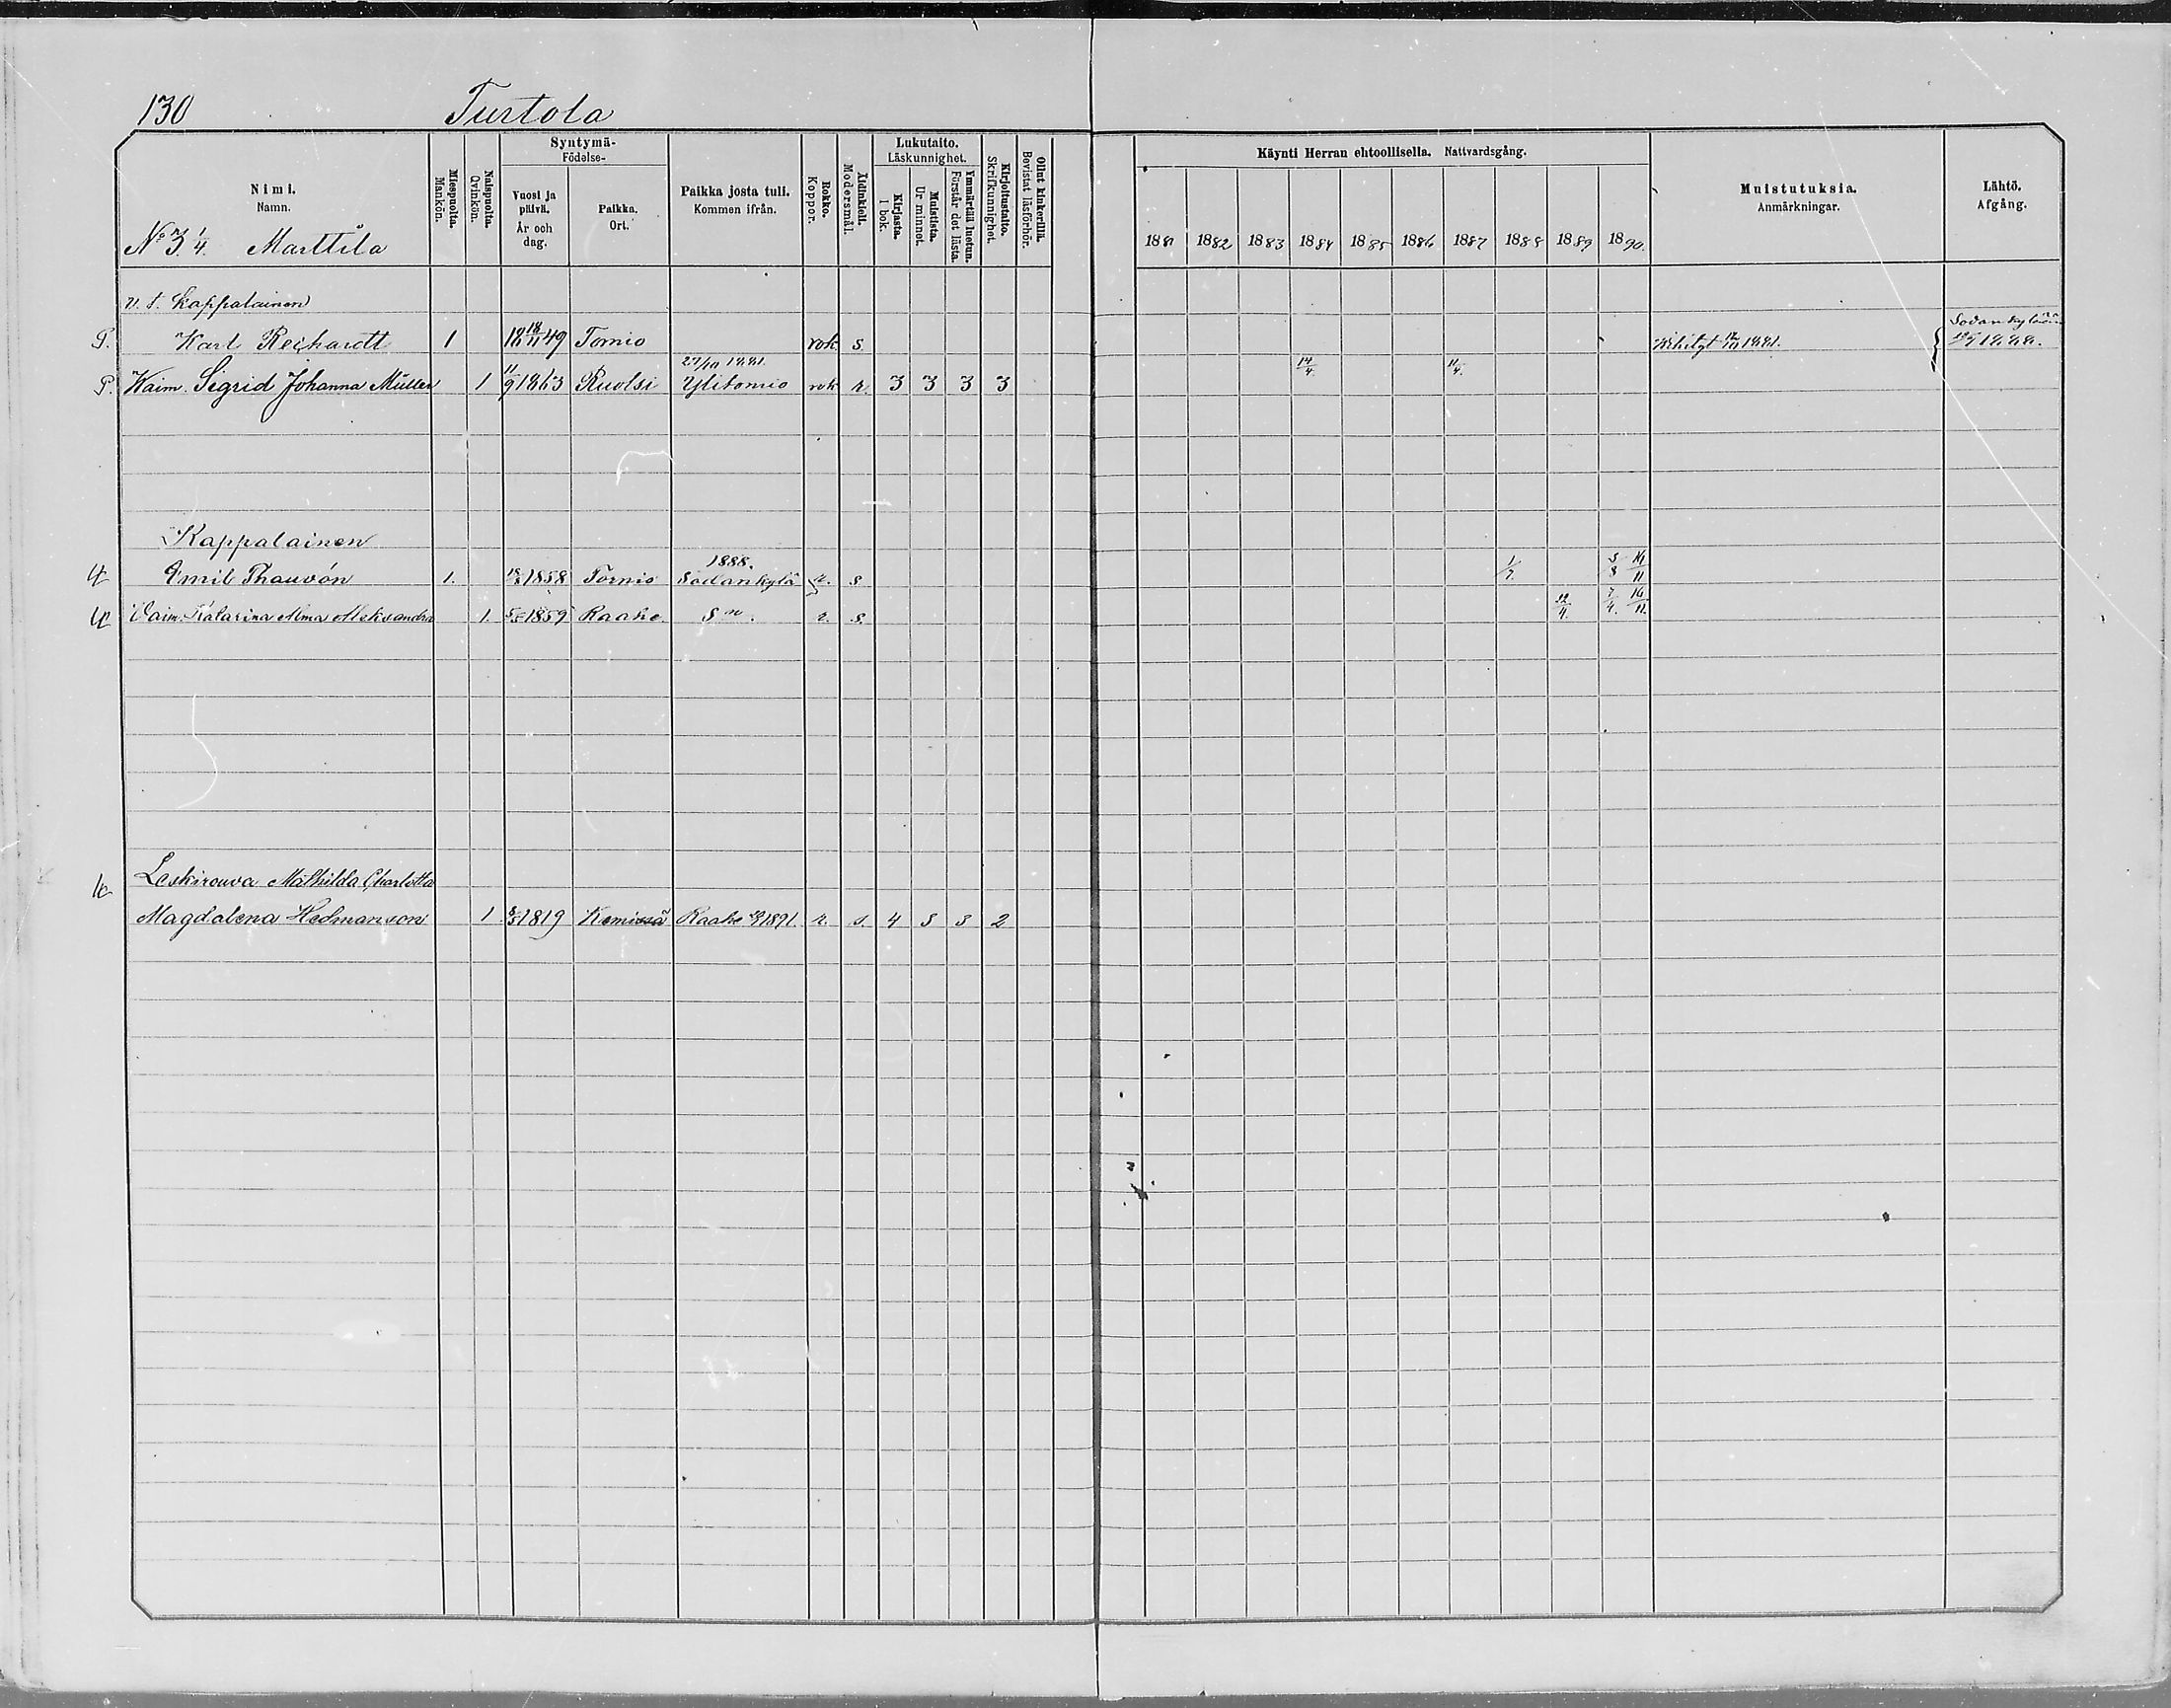 130 Turtola
Nimi.
Namn.
Miespuolta.
Mankön.
Naispuolta.
Qvinkön.
Syntymä-
Födelse-
Vuosi ja päivä.
År och dag.
Paikka.
Ort.
Paikka josta tuli.
Kommen ifrån.
Rokko.
Koppor.
Äidinkieli.
Modersmål.
Lukutaito.
Läskunnighet.
Kirjasta.
I bok.
Muistista.
Ur minnet.
Ymmärtää luetun.
Förstår det lästa.
Kirjoitustaito.
Skrifkunnighet.
Ollut kinkerillä.
Bevistat läsförhör.
Käynti Herran ehtoollisella. Nattvardsgång.
1881 1882 1883 1884 1885 1886 1887 1888 1889 1890.
Muistutuksia.
Anmärkningar.
Lähtö.
Afgång.
No 3. 1/4. Marttila
v. t. Kappalainen
P. Karl Reihardt 1 18 18/11 49 Tornio rok. s. Vihityt 1881. Sodankylään 1888.
P. Waim. Sigrid Johanna Müller 1 11/9 1863 Ruotsi 27/10 1881. Ylitornio rok r. 3 3 3 3 14/4. 11/4.
Kappalainen
Emil Thauvón 1. 1858 Tornio 1888. Sodankylä r. s. 1/7. 3/8 16/11
Vaim. Katarina Alma Aleksandra 1. 1859 Raahe S n. r. s. 22/4. 7/4. 16/11.
Leskirouva Mathilda Charlotta
Magdalena Hedmanson 1 1819 Kemissä Raahe 1891. r. s. 4 3 3 2